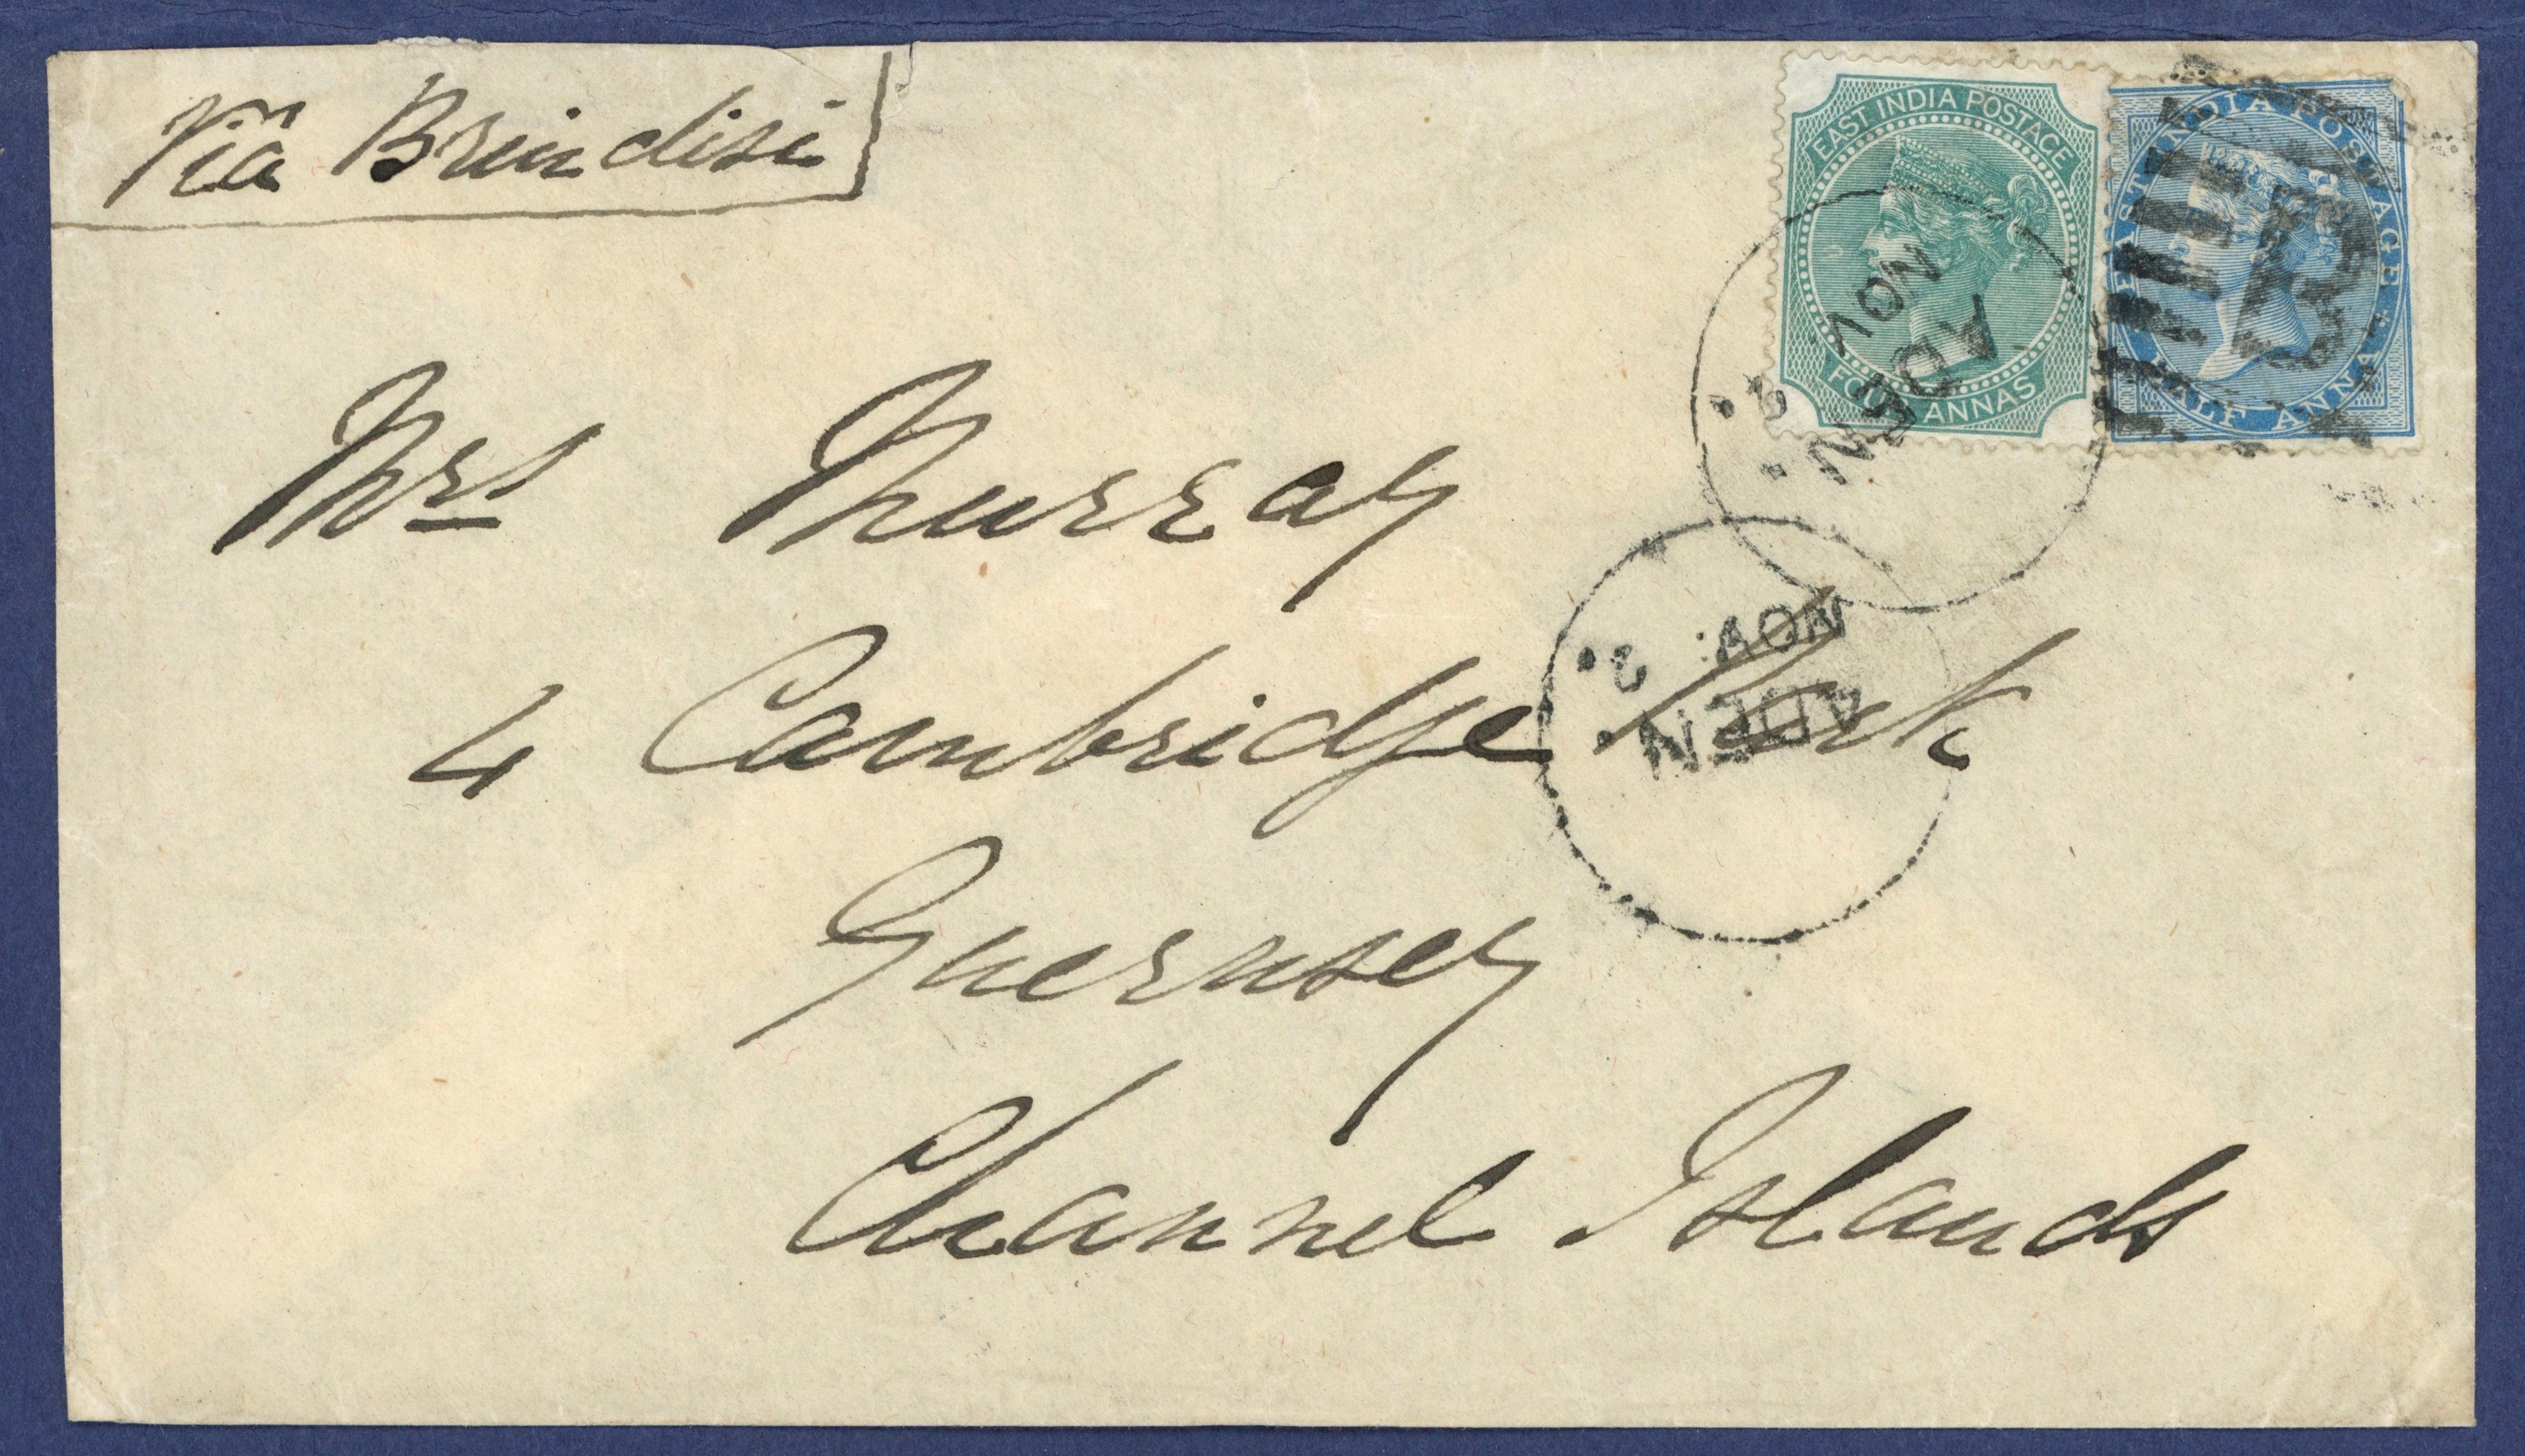 Via Brindisi
EAST INDIA POSTAGE
FOUR ANNAS
EAST INDIA POSTAGE
HALF ANNA
B
ADEN
NOV. 2.
ADEN
NOV. 2.
Mrs Murray
4 Cambridge Park
Guernsey
Channel Islands